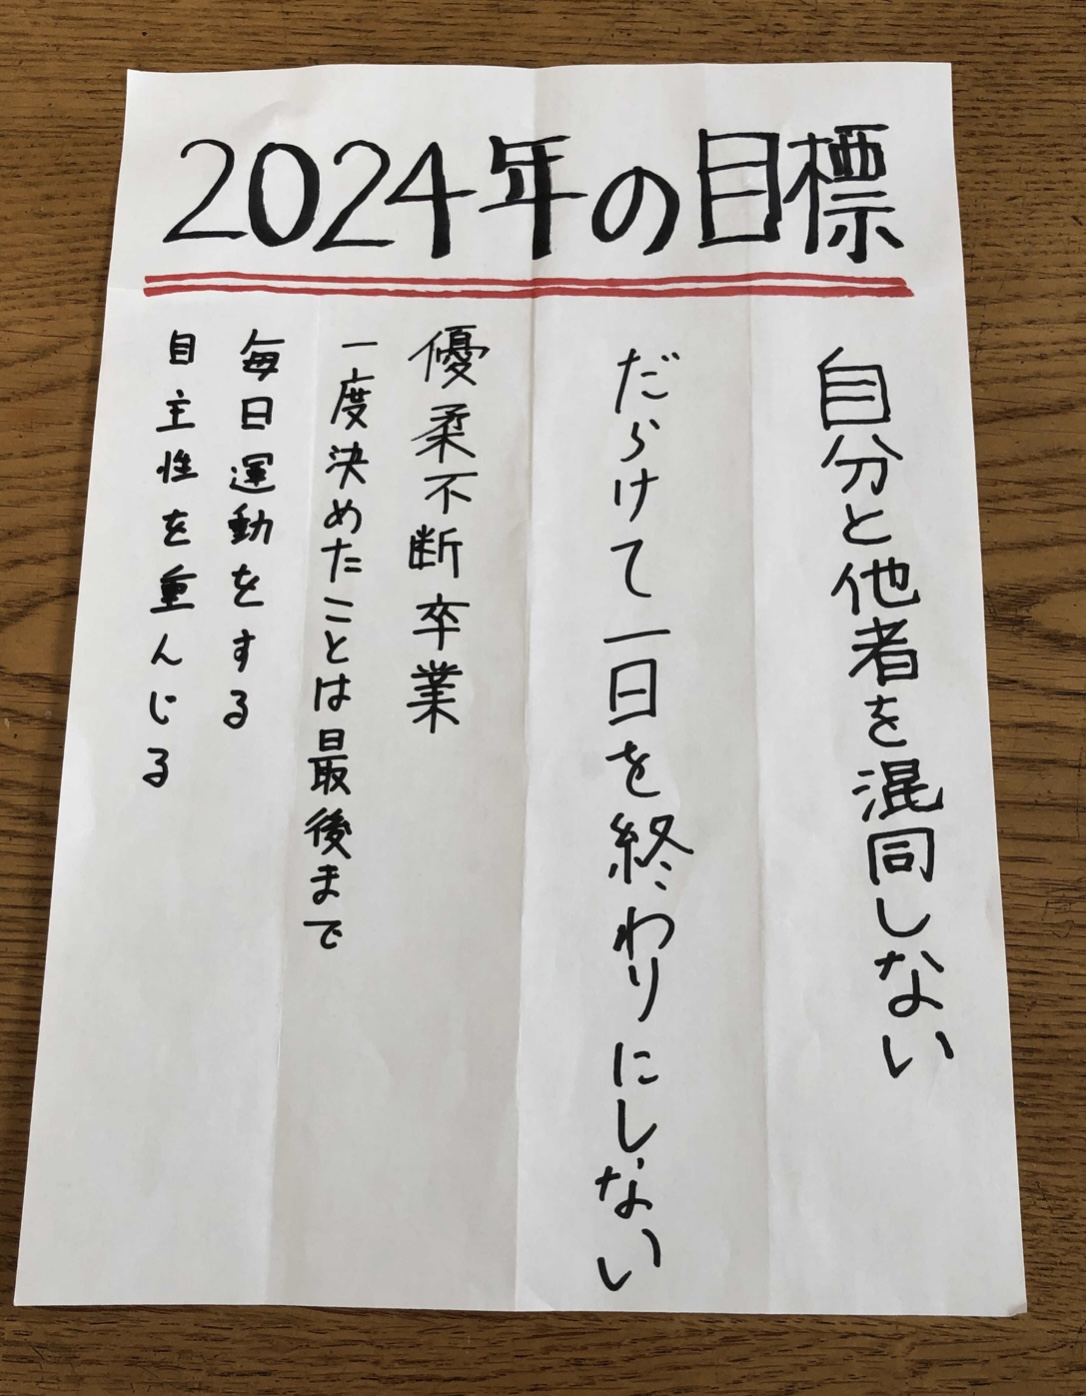 2024年の目標
自分と他者を混同しない
だらけて一日を終わりにしない
優柔不断卒業
一度決めたことは最後まで
毎日運動をする
自主性を重んじる